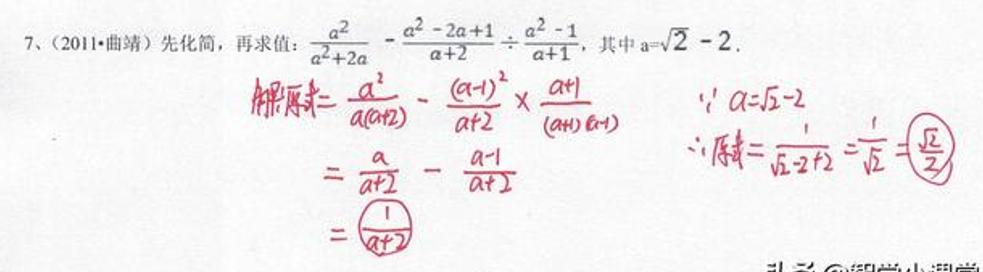 7、（2011•曲靖）先化简，再求值：a²/(a²+2a) - (a²-2a+1)/(a+2) ÷ (a²-1)/(a+1)，其中 a=√2 - 2．
解:原式= a²/(a(a+2)) - (a-1)²/(a+2) × (a+1)/((a+1)(a-1))
= a/(a+2) - (a-1)/(a+2)
= 1/(a+2)
∵ a=√2-2
∴原式= 1/(√2-2+2) = 1/√2 = √2/2